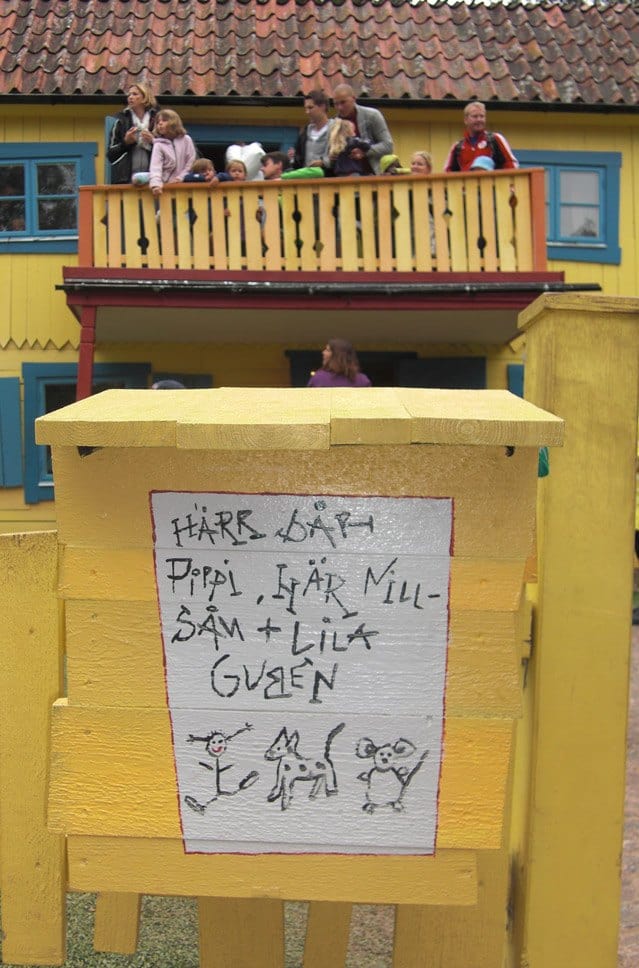 HÄRR BÅR
PiPPi, HÄR NiLL-
SÅN + LiLA
GUBEN